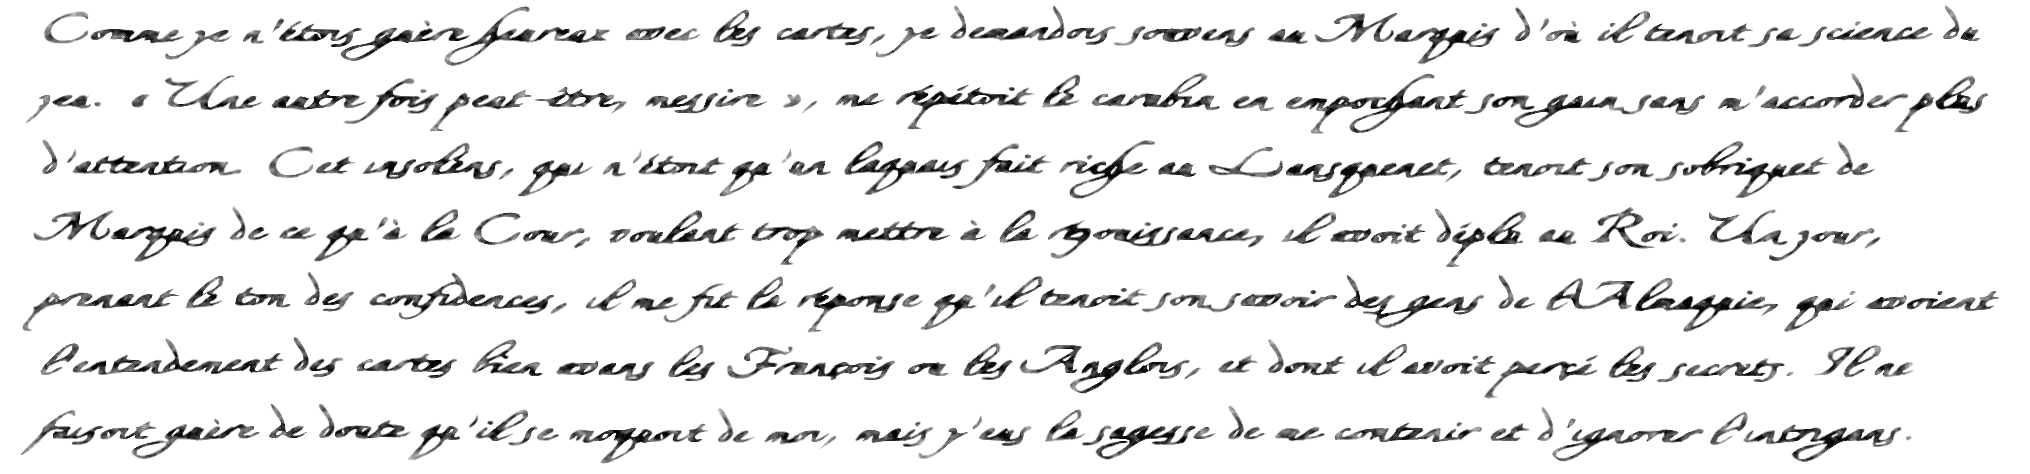 Comme je n'étois guère heureux avec les cartes, je demandois souvens au Marquis d'où il tenoit sa science du
jeu. « Une autre fois peut-être, messire », me répétoit le carabin en empochant son gain sans m'accorder plus
d'attention. Cet insolens, qui n'étoit qu'un laquais fait riche au Lansquenet, tenoit son sobriquet de
Marquis de ce qu'à la Cour, voulant trop mettre à la réjouissance, il avoit déplu au Roi. Un jour,
prenant le ton des confidences, il me fit la réponse qu'il tenoit son savoir des gens de l'Almaquie, qui avoient
l'entendement des cartes bien avans les François ou les Anglois, et dont il avoit perçé les secrets. Il ne
faisoit guère de doute qu'il se moquoit de moi, mais j'eus la sagesse de me contenir et d'ignorer l'intrigans.